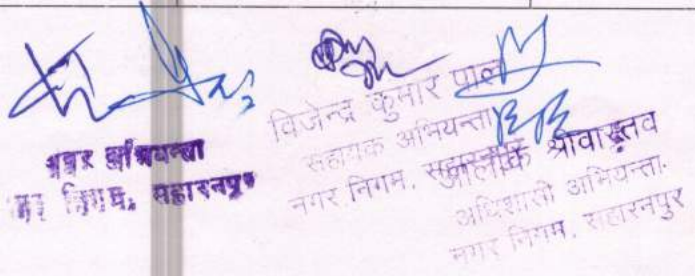 अवर अभियन्ता
नगर निगम, सहारनपुर
विजेन्द्र कुमार पाल
सहायक अभियन्ता
नगर निगम, सहारनपुर
आलोक श्रीवास्तव
अधिशासी अभियन्ता.
नगर निगम, सहारनपुर